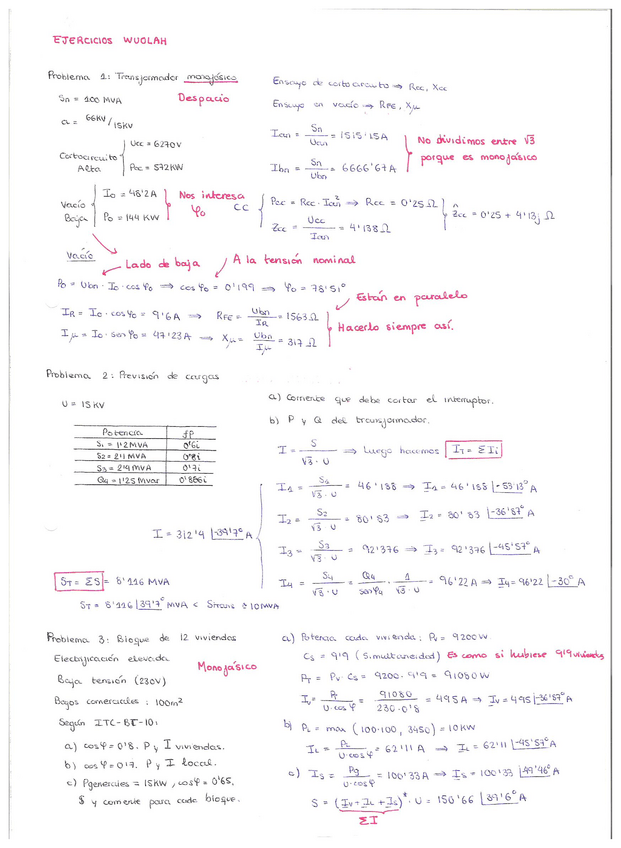 EJERCICIOS WUOLAH
Problema 1: Transformador monofásico
Sn = 100 MVA
Despacio
a = 66KV/15KV
Cortocircuito Alta
Ucc = 6270V
Pcc = 572KW
Vacío Baja
I0 = 48'2A
P0 = 144 KW
Nos interesa φ0
Ensayo de cortocircuito ⇒ Rcc, Xcc
Ensayo en vacío ⇒ RFE, Xμ
Ian = Sn/Uan = 1515'15A
Ibn = Sn/Ubn = 6666'67A
No dividimos entre √3
porque es monofásico
CC
Pcc = Rcc · Ian² ⇒ Rcc = 0'25 Ω
Zcc = Ucc/Ian = 4'138 Ω
Zcc = 0'25 + 4'13j Ω
Vacío
Lado de baja
A la tensión nominal
P0 = Ubn · I0 · cos φ0 ⇒ cos φ0 = 0'199 ⇒ φ0 = 78'51°
Están en paralelo
IR = I0 · cos φ0 = 9'6A ⇒ RFE = Ubn/IR = 1563 Ω
Iμ = I0 · sen φ0 = 47'23A ⇒ Xμ = Ubn/Iμ = 317 Ω
Hacerlo siempre así.
Problema 2: Previsión de cargas
U = 15KV
Potencia fP
S1 = 1'2MVA 0'6i
S2 = 2'1 MVA 0'8i
S3 = 2'4 MVA 0'7i
Q4 = 1'25 Mvar 0'866i
I = 312'4 |-39'7° A
ST = ΣS = 8'116 MVA
ST = 8'116 |39'7° MVA < Strans = 10MVA
a) Corriente que debe cortar el interruptor.
b) P y Q del transformador.
I = S/√3 · U ⇒ Luego hacemos IT = ΣIi
I1 = S1/√3 · U = 46'188 ⇒ I1 = 46'188 |-53'13° A
I2 = S2/√3 · U = 80'83 ⇒ I2 = 80'83 |-36'87° A
I3 = S3/√3 · U = 92'376 ⇒ I3 = 92'376 |-45'57° A
I4 = S4/√3 · U = Q4/senφ4 · 1/√3 · U = 96'22 A ⇒ I4 = 96'22 |-30° A
Problema 3: Bloque de 12 viviendas
Electrificación elevada
Monofásico
Baja tensión (230V)
Bajos comerciales: 100m²
Según ITC-BT-10:
a) cosφ = 0'8. P y I viviendas.
b) cosφ = 0'7. P y I local.
c) Pgenerales = 15KW, cosφ = 0'65.
S y corriente para cada bloque.
a) Potencia cada vivienda: Pv = 9200W
Cs = 9'9 (Simultaneidad) Es como si hubiese 9'9 viviendas
PT = Pv · Cs = 9200 · 9'9 = 91080W
Iv = PT/U·cosφ = 91080/230·0'8 = 495A ⇒ Iv = 495 |-36'87° A
b) PL = max (100·100, 3450) = 10KW
IL = PL/U·cosφ = 62'11 A ⇒ IL = 62'11 |-45'57° A
c) IS = Pg/U·cosφ = 100'33A ⇒ IS = 100'33 |49'46° A
S = (Iv + IL + IS)* · U = 150'66 |39'6° A
ΣI